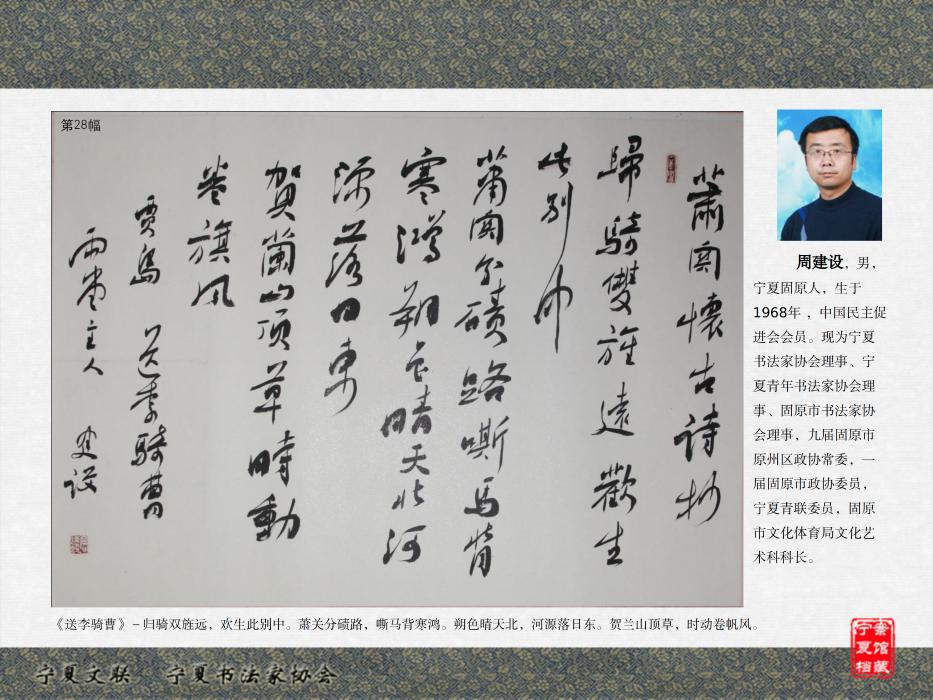 第28幅
蕭関懷古诗抄
歸騎雙旌遠歡生
此别中
蕭関分磧路嘶馬背
寒鸿朔色晴天北河
源落日東
賀蘭山顶草時動
卷旗风
賈島 送李騎曹
雨巷主人 建设
周建设，男，
宁夏固原人，生于
1968年 ，中国民主促
进会会员。现为宁夏
书法家协会理事、宁
夏青年书法家协会理
事、固原市书法家协
会理事，九届固原市
原州区政协常委，一
届固原市政协委员，
宁夏青联委员，固原
市文化体育局文化艺
术科科长。
《送李骑曹》－归骑双旌远，欢生此别中。萧关分碛路，嘶马背寒鸿。朔色晴天北，河源落日东。贺兰山顶草，时动卷帆风。
宁夏文联 宁夏书法家协会
宁夏档案馆藏